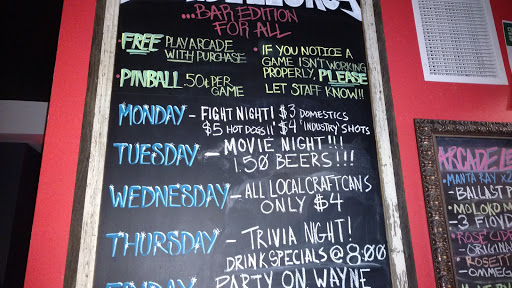 ...BAR EDITION
FOR ALL
• FREE PLAY ARCADE
WITH PURCHASE
• PINBALL .50¢ PER
GAME
• IF YOU NOTICE A
GAME ISN'T WORKING
PROPERLY, PLEASE
LET STAFF KNOW!!
MONDAY – FIGHT NIGHT! $3 DOMESTICS
$5 HOT DOGS!! $4 'INDUSTRY' SHOTS
TUESDAY – MOVIE NIGHT!!!
1.50 BEERS!!!
WEDNESDAY – ALL LOCAL CRAFT CANS
ONLY $4
THURSDAY – TRIVIA NIGHT!
DRINK SPECIALS @ 8:00
FRIDAY PARTY ON WAYNE
ARCADE LE
• MANTA RAY
- BALLAST P
• MOLOKO M
- 3 FLOYD
• ROSE CIDER
- ORIGINA
• ROSETT
- OMMEG